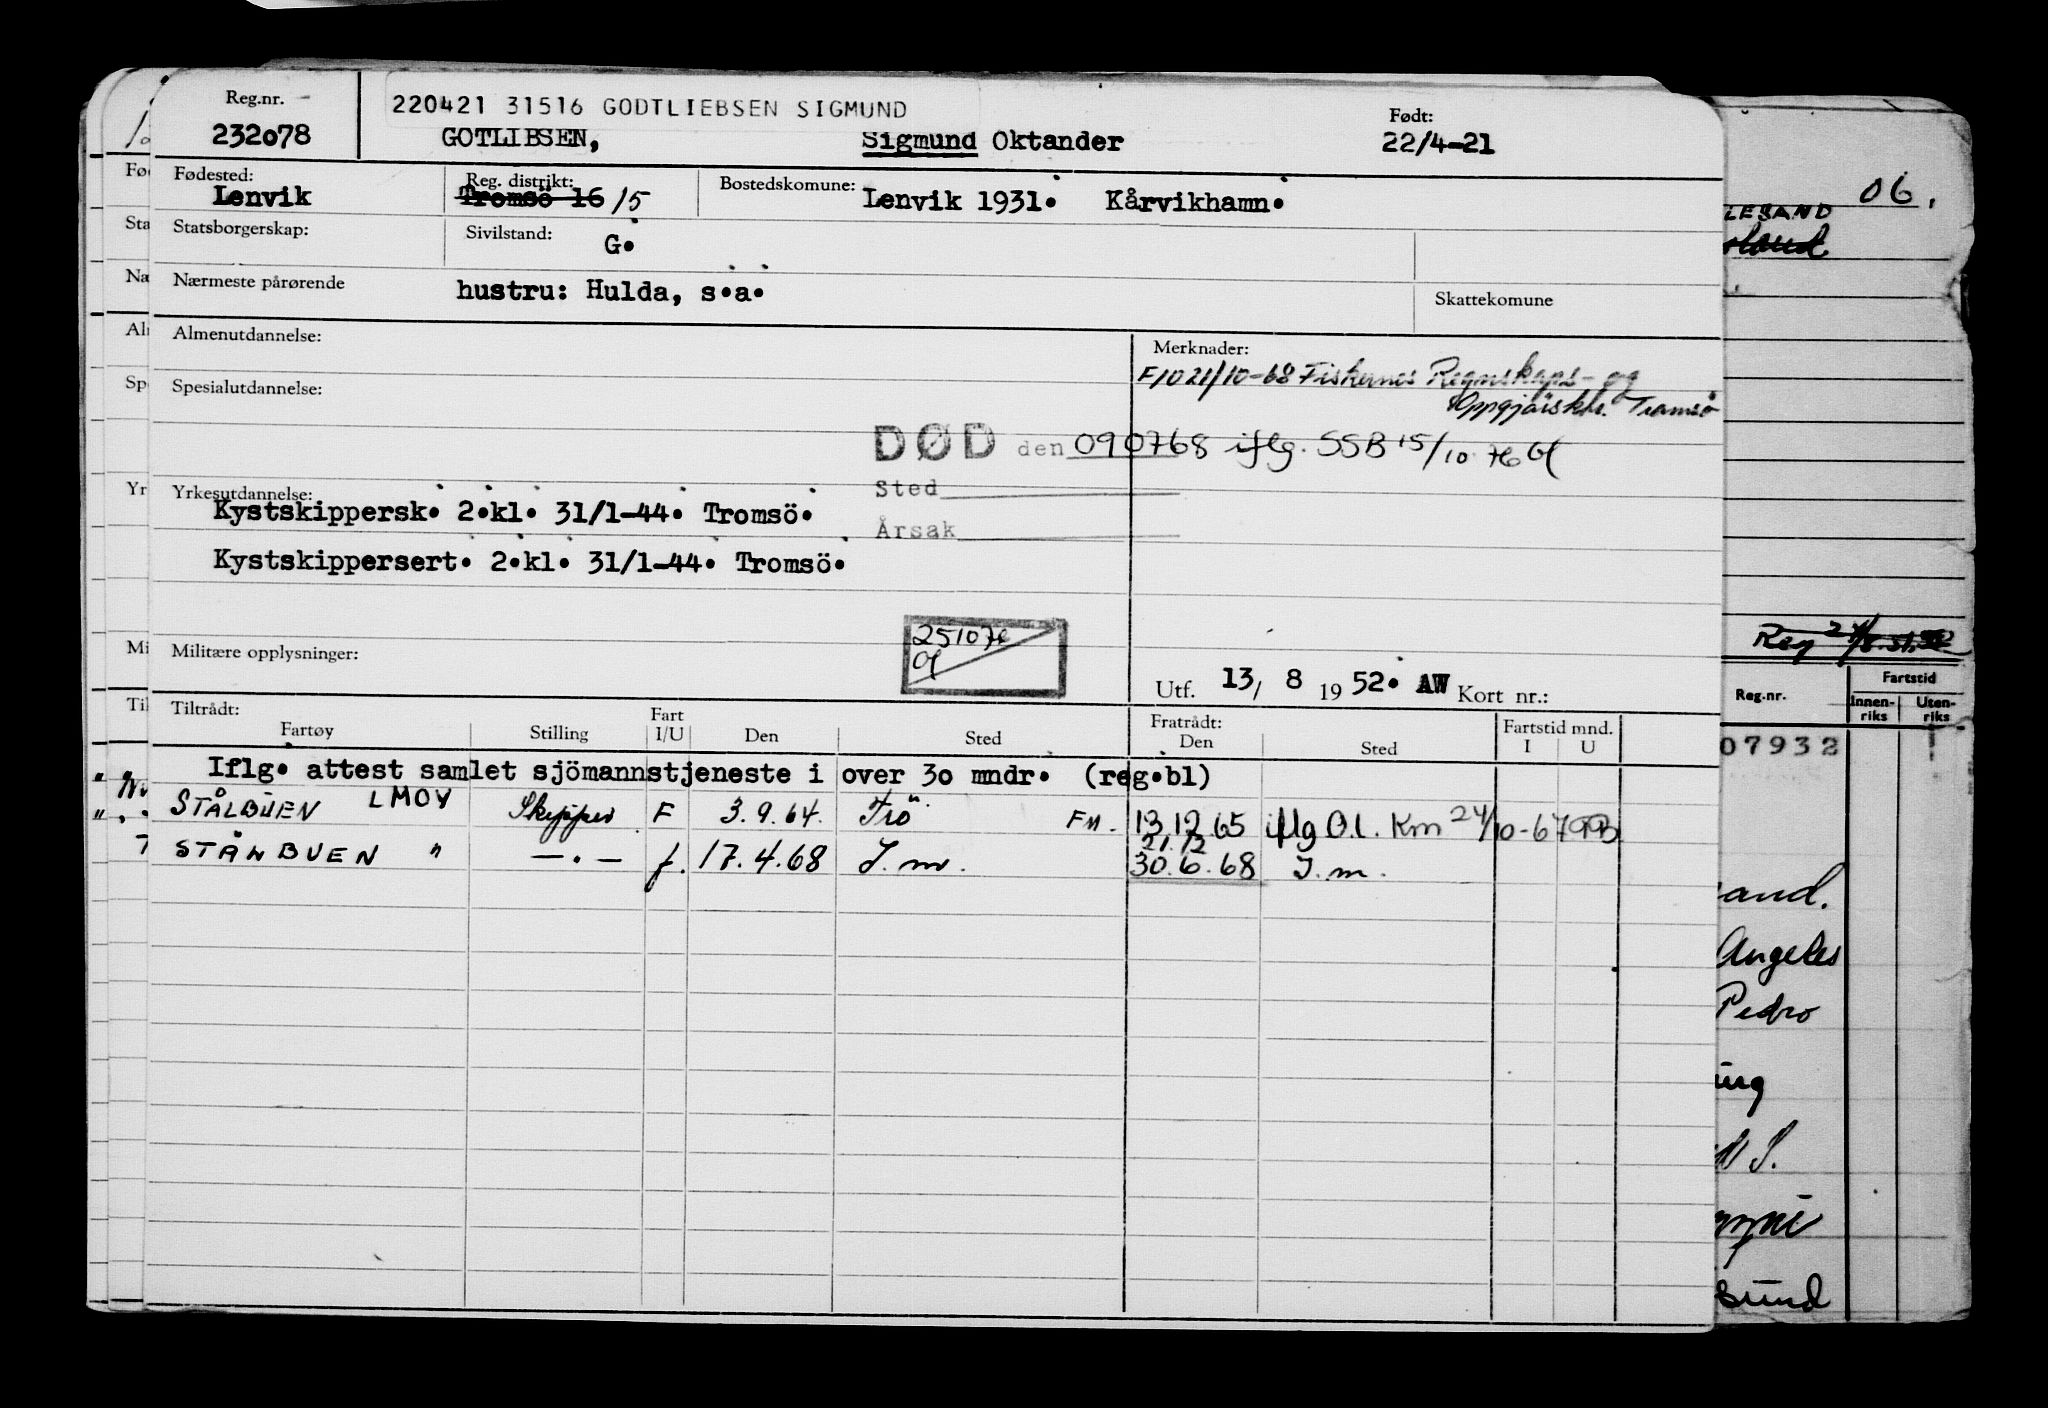 Reg.nr.
232078
220421 31516 GODTLIEBSEN SIGMUND
GOTLIBSEN, Sigmund Oktander
Født:
22/4-21
Fødested:
Lenvik
Reg. distrikt:
Tromsö 16 /5
Bostedskomune: Lenvik 1931. Kårvikhamn.
Statsborgerskap:
Sivilstand: G.
Nærmeste pårørende hustru: Hulda, s.a.
Skattekomune
Almenutdannelse:
Merknader:
F1021/10-68 Fiskernes Regnskaps- og
Oppgjörsktr. Tromsö
Spesialutdannelse:
DØD den 090768 iflg. SSB 15/10 76
Sted
Årsak
Yrkesutdannelse:
Kystskippersk. 2.kl. 31/1-44. Tromsö.
Kystskippersert. 2.kl. 31/1-44. Tromsö.
251076
Militære opplysninger:
Utf. 13/ 8 1952. AW Kort nr.:
Tiltrådt:
Fartøy Stilling Fart I/U Den Sted
Fratrådt:
Den Sted
Fartstid mnd.
I U
Iflg. attest samlet sjömannstjeneste i over 30 mndr. (reg.bl)
STÅLBUEN LMOY Skipper F 3.9.64. Trö FM. 13.12.65 iflg O.l. Km 24/10-67
21.12
STÅLBUEN " —.— f. 17.4.68 T.m. 30.6.68 T.m.
06.
LESAND
Reg.nr.
Fartstid
Innen-
riks
Uten-
riks
07932
sand.
Angeles
Pedro
sund